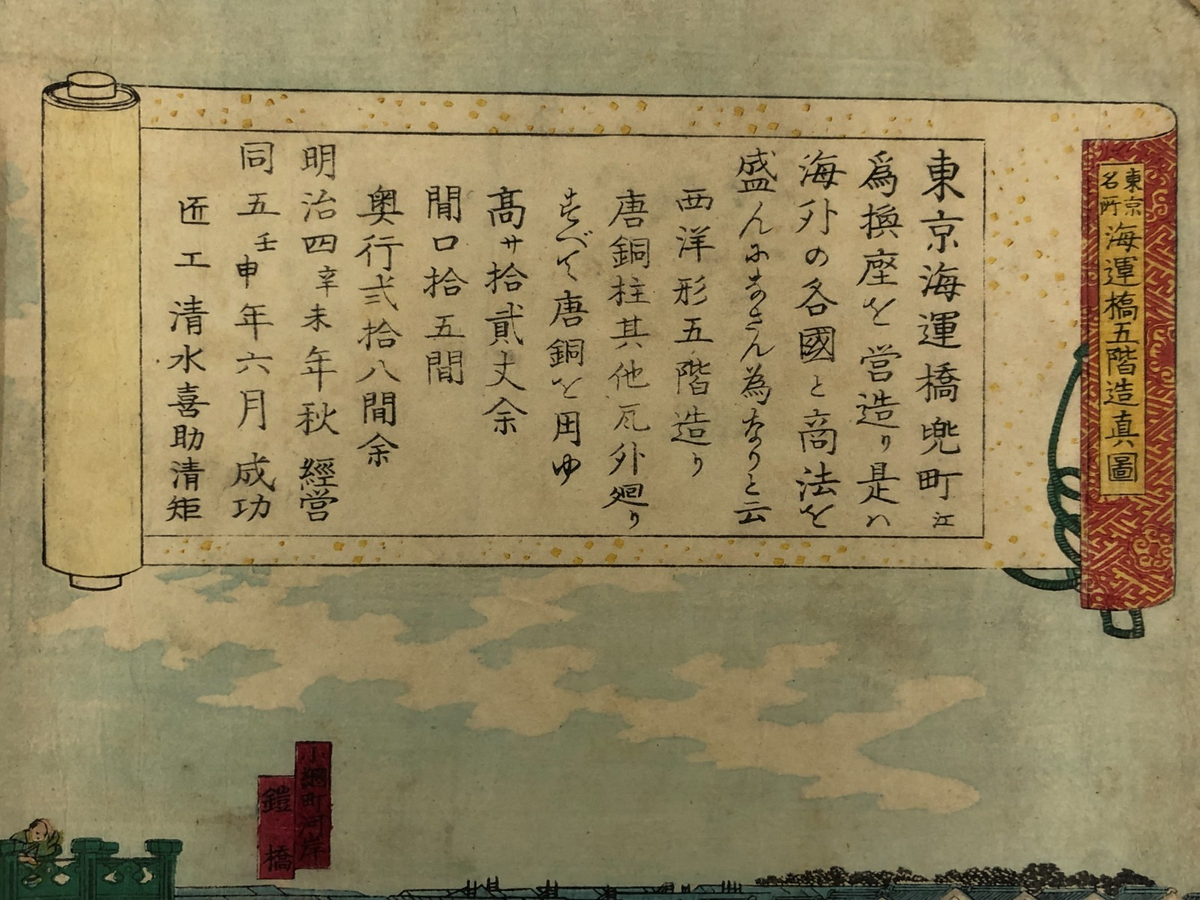 東京
名所
海運橋五階造真圖
東京海運橋兜町江
爲換座を営造り是ハ
海外の各國と商法を
盛んにまさん為なりと云
西洋形五階造り
唐銅柱其他瓦外廻り
すべて唐銅を用ゆ
髙サ拾貳丈余
間口拾五間
奥行弐拾八間余
明治四辛未年秋經営
同五壬申年六月成功
匠工清水喜助清矩
小網町河岸
鎧橋